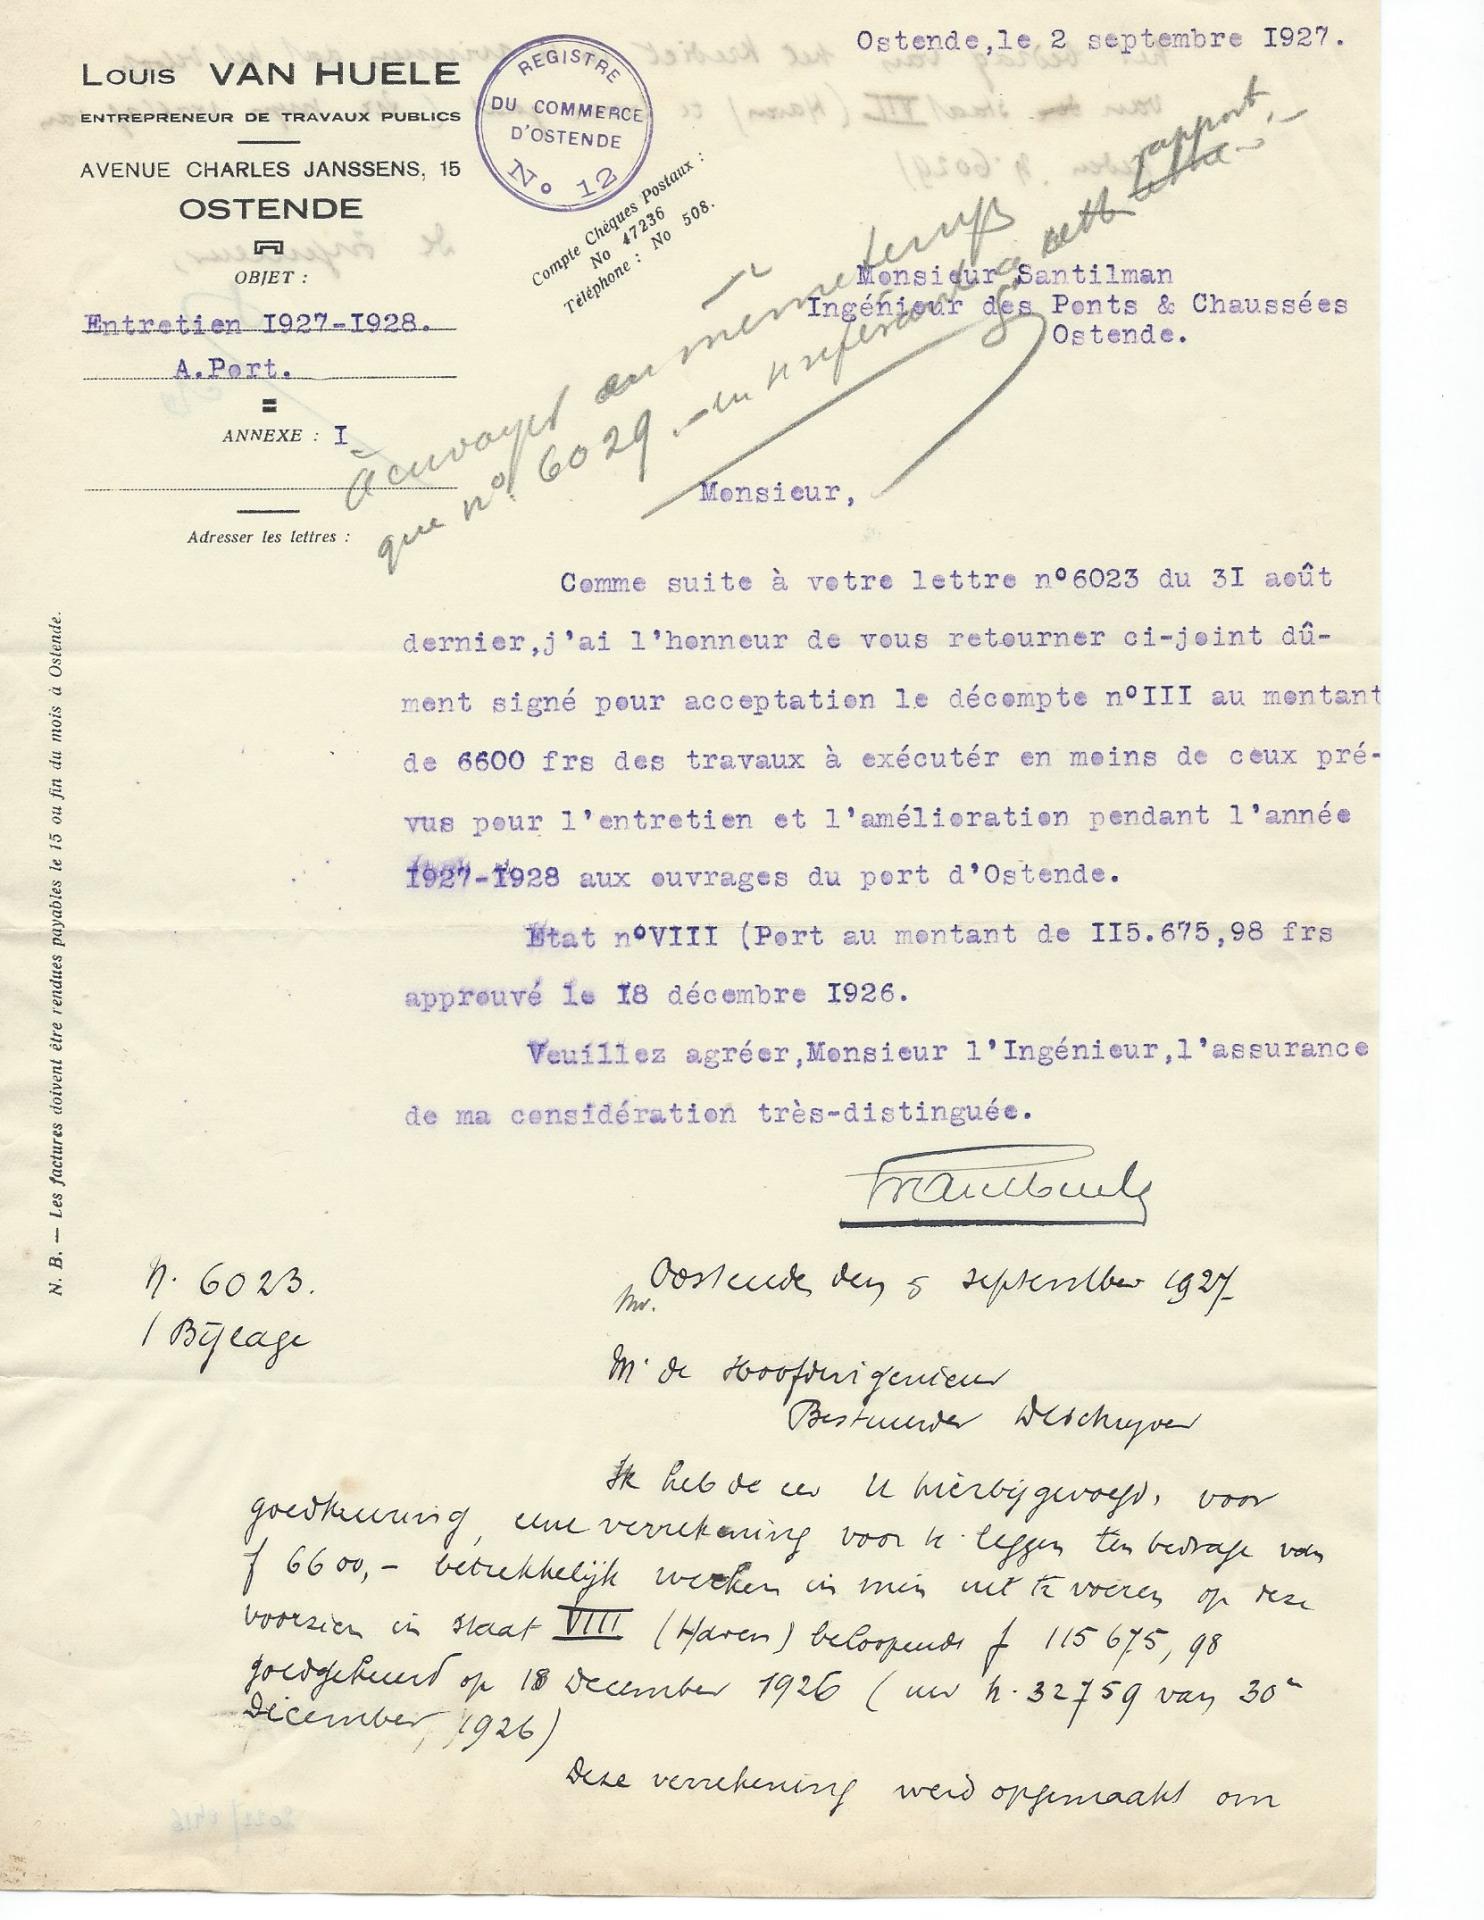 Ostende,le 2 septembre I927.
LOUIS VAN HUELE
ENTREPRENEUR DE TRAVAUX PUBLICS
AVENUE CHARLES JANSSENS, 15
OSTENDE
REGISTRE
DU COMMERCE
D'OSTENDE
No 12
Compte Chèques Postaux :
No 47236
Téléphone : No 508.
OBJET :
Entretien I927-I928.
A.Port.
ANNEXE : I
Adresser les lettres :
Monsieur Santilman
Ingénieur des Ponts & Chaussées
Ostende.
à envoyer en même temps
que n° 6029.- en référant à cette lettre rapport.
Monsieur,
Comme suite à votre lettre n°6023 du 3I août
dernier,j'ai l'honneur de vous retourner ci-joint dû-
ment signé pour acceptation le décompte n°III au montant
de 6600 frs des travaux à exécutér en moins de ceux pré-
vus pour l'entretien et l'amélioration pendant l'année
I927-I928 aux ouvrages du port d'Ostende.
Etat n°VIII (Port au montant de II5.675,98 frs
approuvé le I8 décembre I926.
Veuillez agréer,Monsieur l'Ingénieur,l'assurance
de ma considération très-distinguée.
N. B. — Les factures doivent être rendues payables le 15 ou fin du mois à Ostende.
N. 6023.
1 Bijlage
Oostende den 5 september 1927
M. de Hoofdingenieur
Bestuurder Deschryver
Ik heb de eer U hierbijgevoegd, voor
goedkeuring, eene verrekening voor te leggen ten bedrage van
f 6600,- betrekkelijk werken in min uit te voeren op deze
voorzien in staat VIII (Haven) beloopende f 115675,98
goedgekeurd op 18 December 1926 (uw n. 32759 van 30n
December, 1926)
Deze verrekening werd opgemaakt om